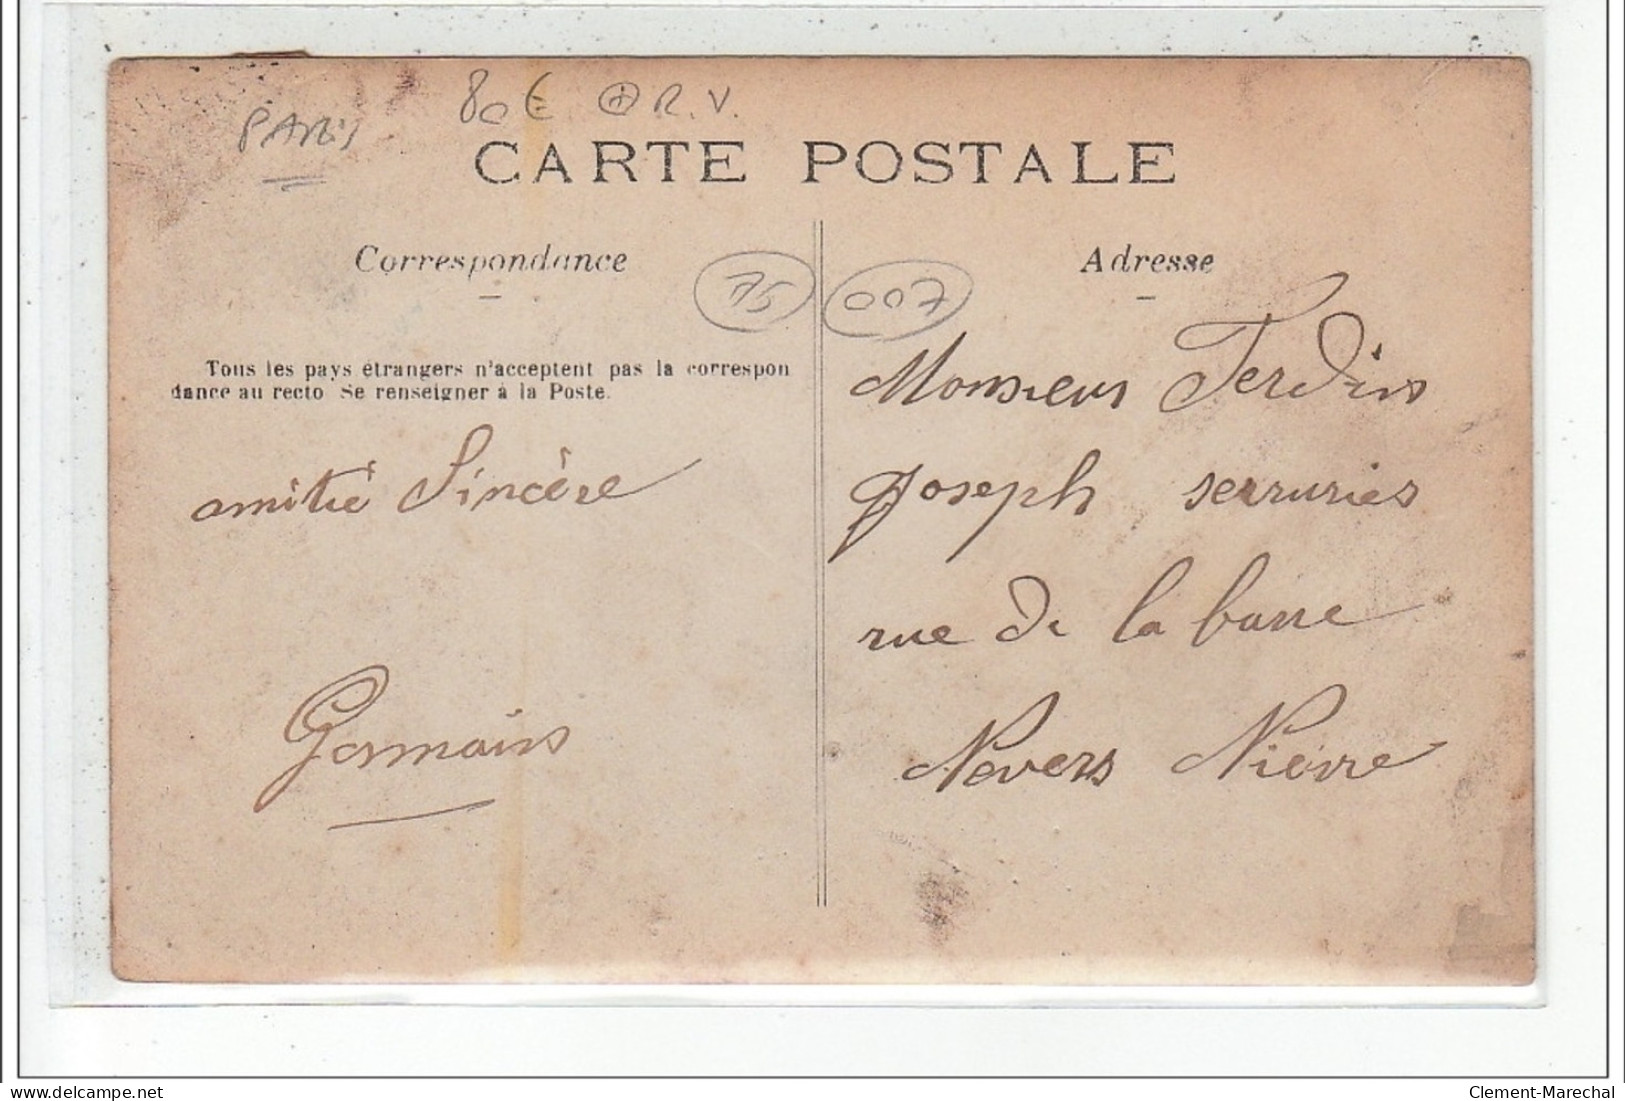 PARIS
80€ R.V.
CARTE POSTALE
Correspondance
75
007
Adresse
Tous les pays étrangers n'acceptent pas la correspon
dance au recto Se renseigner à la Poste.
amitié Sincère
Germain
Monsieur Ferdin
Joseph serrurier
rue de la barre
Nevers Nièvre
delcampe.net
Clement-Marechal